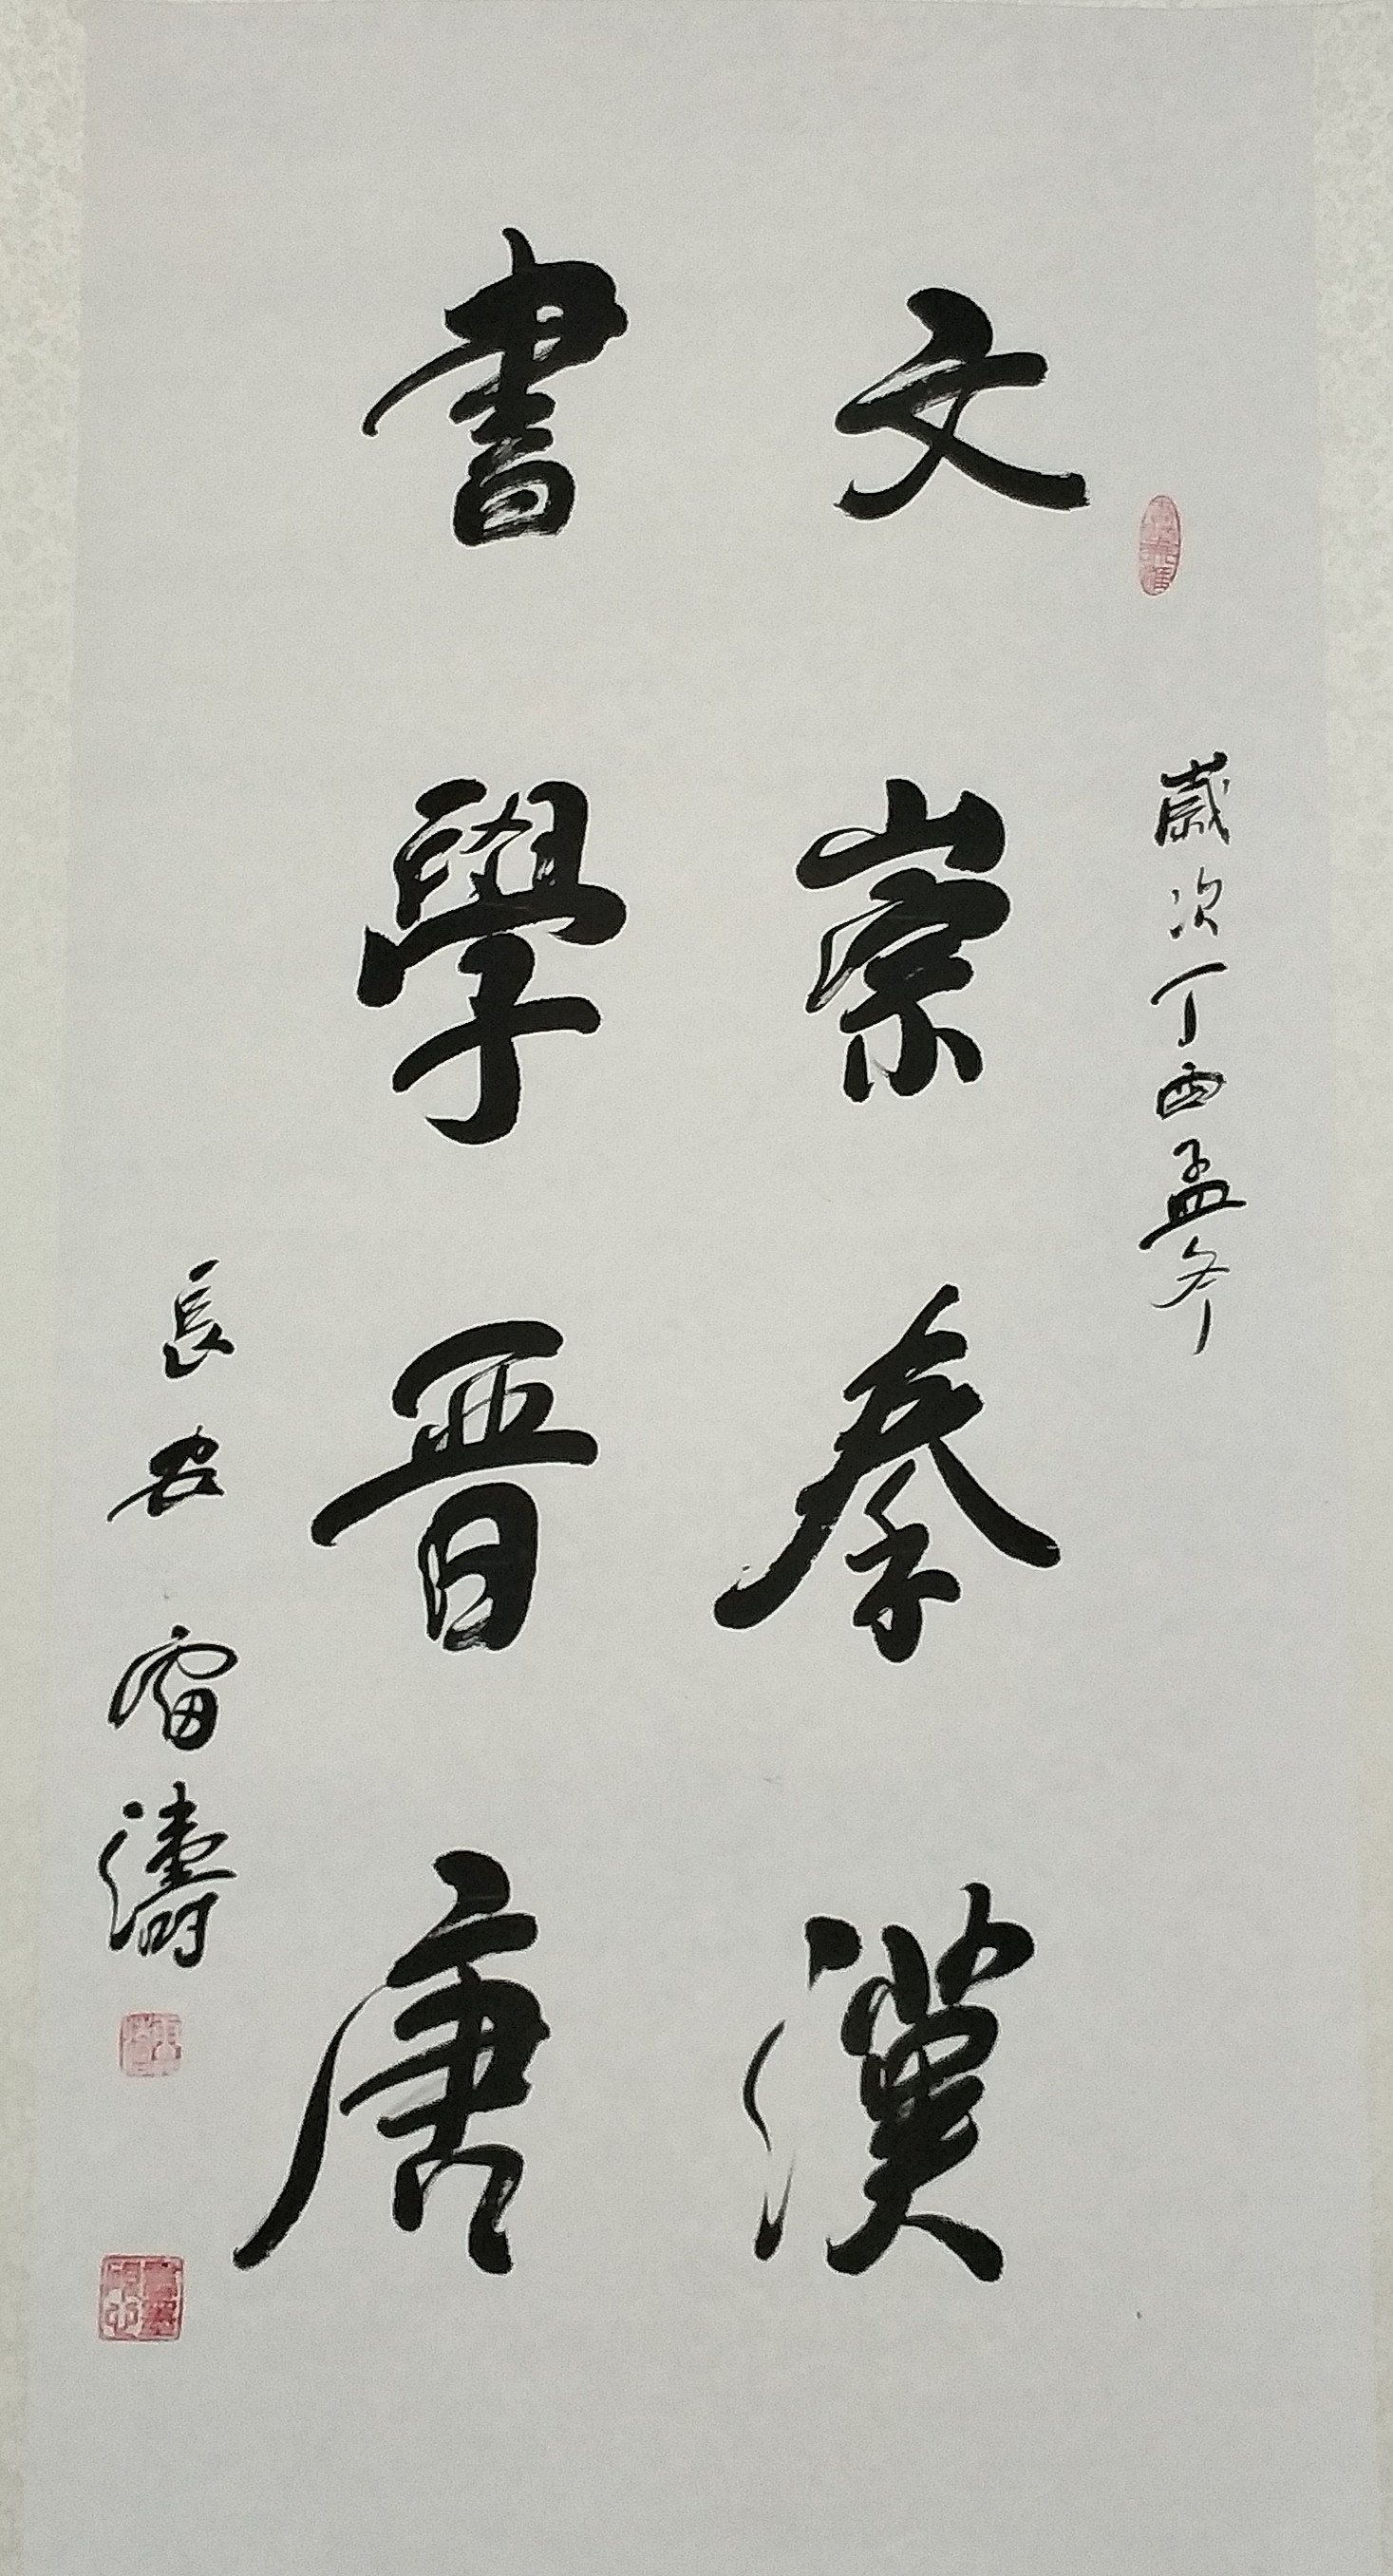 歲次丁酉孟冬
文崇秦漢
書學晉唐
長安雷濤